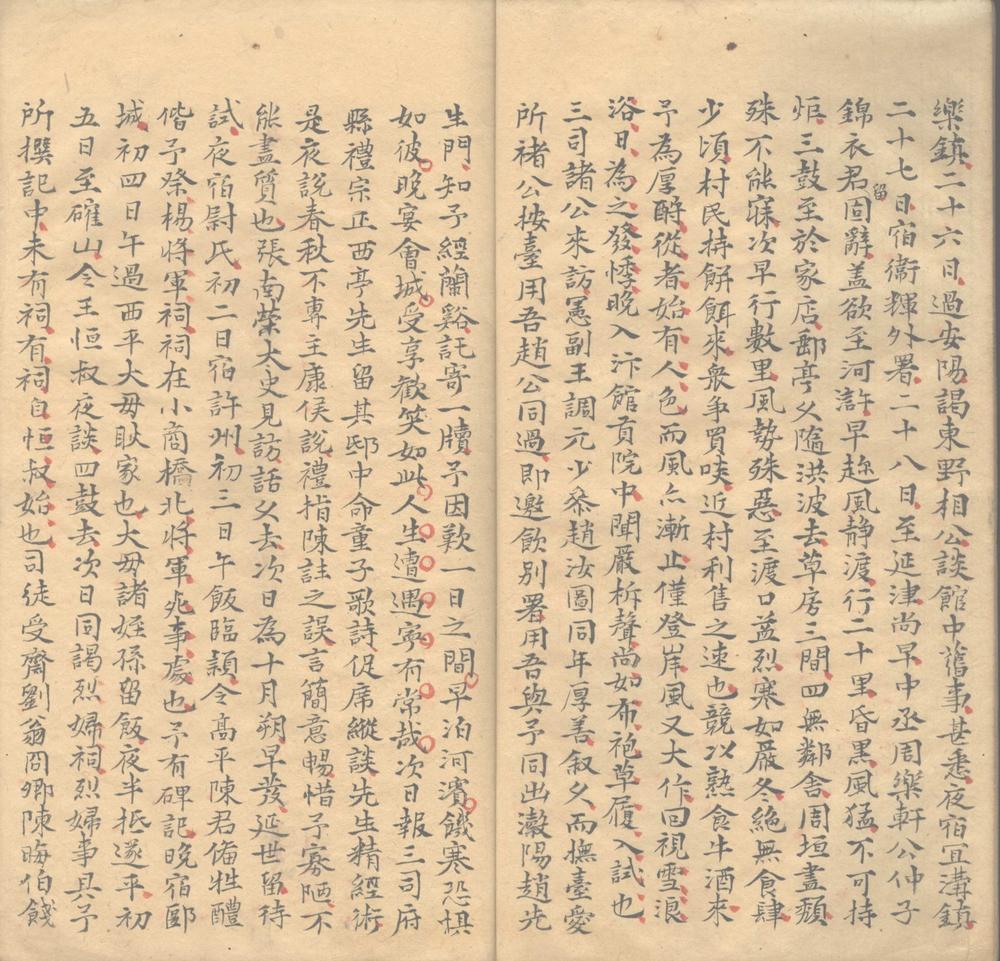 樂鎮二十六日過安陽謁東野相公談館中舊事甚悉夜宿宜溝鎮
二十七日宿衞輝外署二十八日至延津尚早中丞周樂軒公仲子
錦衣君固留辭盖欲至河滸早趂風静渡行二十里昏黑風猛不可持
炬三鼓至於家店郵亭乆隨洪波去草房三間四無鄰舍周垣盡頽
殊不能寐次早行數里風勢殊惡至渡口益烈寒如嚴冬絶無食肆
少頃村民持餅餌來衆争買啖近村利售之速也競以熟食牛酒來
予為厚酧從者始有人色而風亦漸止僅登岸風又大作回視雪浪
浴日為之發悸晚入汴館貢院中聞嚴柝聲尚如布袍草履入試也
三司諸公來訪憲副王調元少叅趙汝圖同年厚善叙乆而撫臺愛
所褚公按臺用吾趙公同過即邀飲别署用吾與予同出瀫陽趙先
生門知予經蘭谿託寄一牘予因歎一日之間早泊河濱饑寒恐惧
如彼晚宴會城受享歡笑如此人生遭遇寧有常哉次日報三司府
縣禮宗正西亭先生留其邸中命童子歌詩促席縱談先生精經術
是夜説春秋不專主康侯説禮指陳註之誤言簡意暢惜予寡陋不
能盡質也張南榮大史見訪話乆去次日為十月朔早發延世留待
試夜宿尉氏初二日宿許州初三日午飯臨頴令髙平陳君俻牲醴
偕予祭楊將軍祠祠在小商橋北將軍死事處也予有碑記晚宿郾
城初四日午過西平大毋耿家也大毋諸姪孫留飯夜半抵遂平初
五日至確山令王恒叔夜談四鼓去次日同謁烈婦祠烈婦事具予
所撰記中未有祠有祠自恒叔始也司徒受齋劉翁冏卿陳晦伯餞